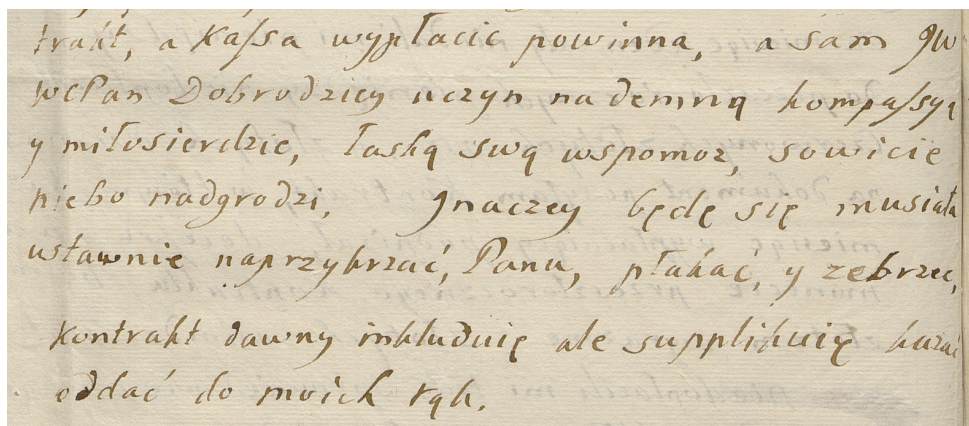 trakt, a Kassa wypłacic powinna, a sam JW
WcPan Dobrodziey uczyn nademną kompassyą
y miłosierdzie, łaską swą wspomoz, sowicie
niebo nadgrodzi, Jnaczey będę się musiała
ustawnie naprzykrzać, Panu, płakać, y zebrzec,
Kontrakt dawny inkluduię ale supplikuię kazać
oddać do moich rąk.